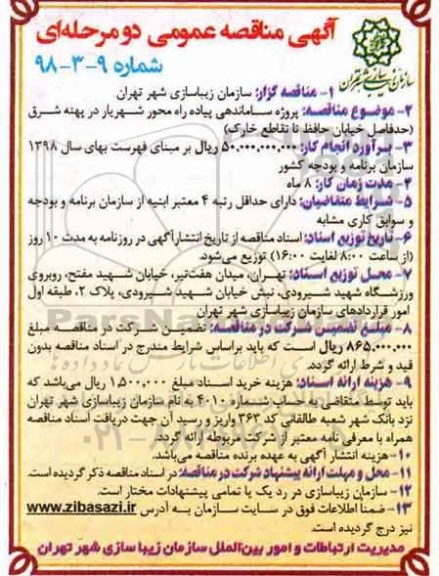 آگهی مناقصه عمومی دو مرحله‌ای
شماره ۹-۳-۹۸
سازمان زیباسازی شهر تهران
۱- مناقصه گزار: سازمان زیباسازی شهر تهران
۲- موضوع مناقصه: پروژه ساماندهی پیاده راه محور شهریار در پهنه شرق
(حدفاصل خیابان حافظ تا تقاطع خارک)
۳- برآورد انجام کار: ۵۰.۰۰۰.۰۰۰.۰۰۰ ریال بر مبنای فهرست بهای سال ۱۳۹۸
سازمان برنامه و بودجه کشور
۴- مدت زمان کار: ۸ ماه
۵- شرایط متقاضیان: دارای حداقل رتبه ۴ معتبر ابنیه از سازمان برنامه و بودجه
و سوابق کاری مشابه
۶- تاریخ توزیع اسناد: اسناد مناقصه از تاریخ انتشار آگهی در روزنامه به مدت ۱۰ روز
(از ساعت ۸:۰۰ لغایت ۱۶:۰۰) توزیع می‌شود.
۷- محل توزیع اسناد: تهران، میدان هفت‌تیر، خیابان شهید مفتح، روبروی
ورزشگاه شهید شیرودی، نبش خیابان شهید شیرودی، پلاک ۲، طبقه اول
امور قراردادهای سازمان زیباسازی شهر تهران
۸- مبلغ تضمین شرکت در مناقصه: تضمین شرکت در مناقصه مبلغ
۸۶۵.۰۰۰.۰۰۰ ریال است که باید براساس شرایط مندرج در اسناد مناقصه بدون
قید و شرط ارائه گردد.
۹- هزینه ارائه اسناد: هزینه خرید اسناد مبلغ ۱,۵۰۰,۰۰۰ ریال می‌باشد که
باید توسط متقاضی به حساب شماره ۴۰۱۰ به نام سازمان زیباسازی شهر تهران
نزد بانک شهر شعبه طالقانی کد ۳۶۳ واریز و رسید آن جهت دریافت اسناد مناقصه
همراه با معرفی نامه معتبر از شرکت مربوطه ارائه گردد.
۱۰- هزینه انتشار آگهی به عهده برنده مناقصه می‌باشد.
۱۱- محل و مهلت ارائه پیشنهاد شرکت در مناقصه: در اسناد مناقصه ذکر گردیده است.
۱۲- سازمان زیباسازی در رد یک یا تمامی پیشنهادات مختار است.
۱۳- ضمنا اطلاعات فوق در سایت سازمان به آدرس www.zibasazi.ir
نیز درج گردیده است.
مدیریت ارتباطات و امور بین‌الملل سازمان زیبا سازی شهر تهران